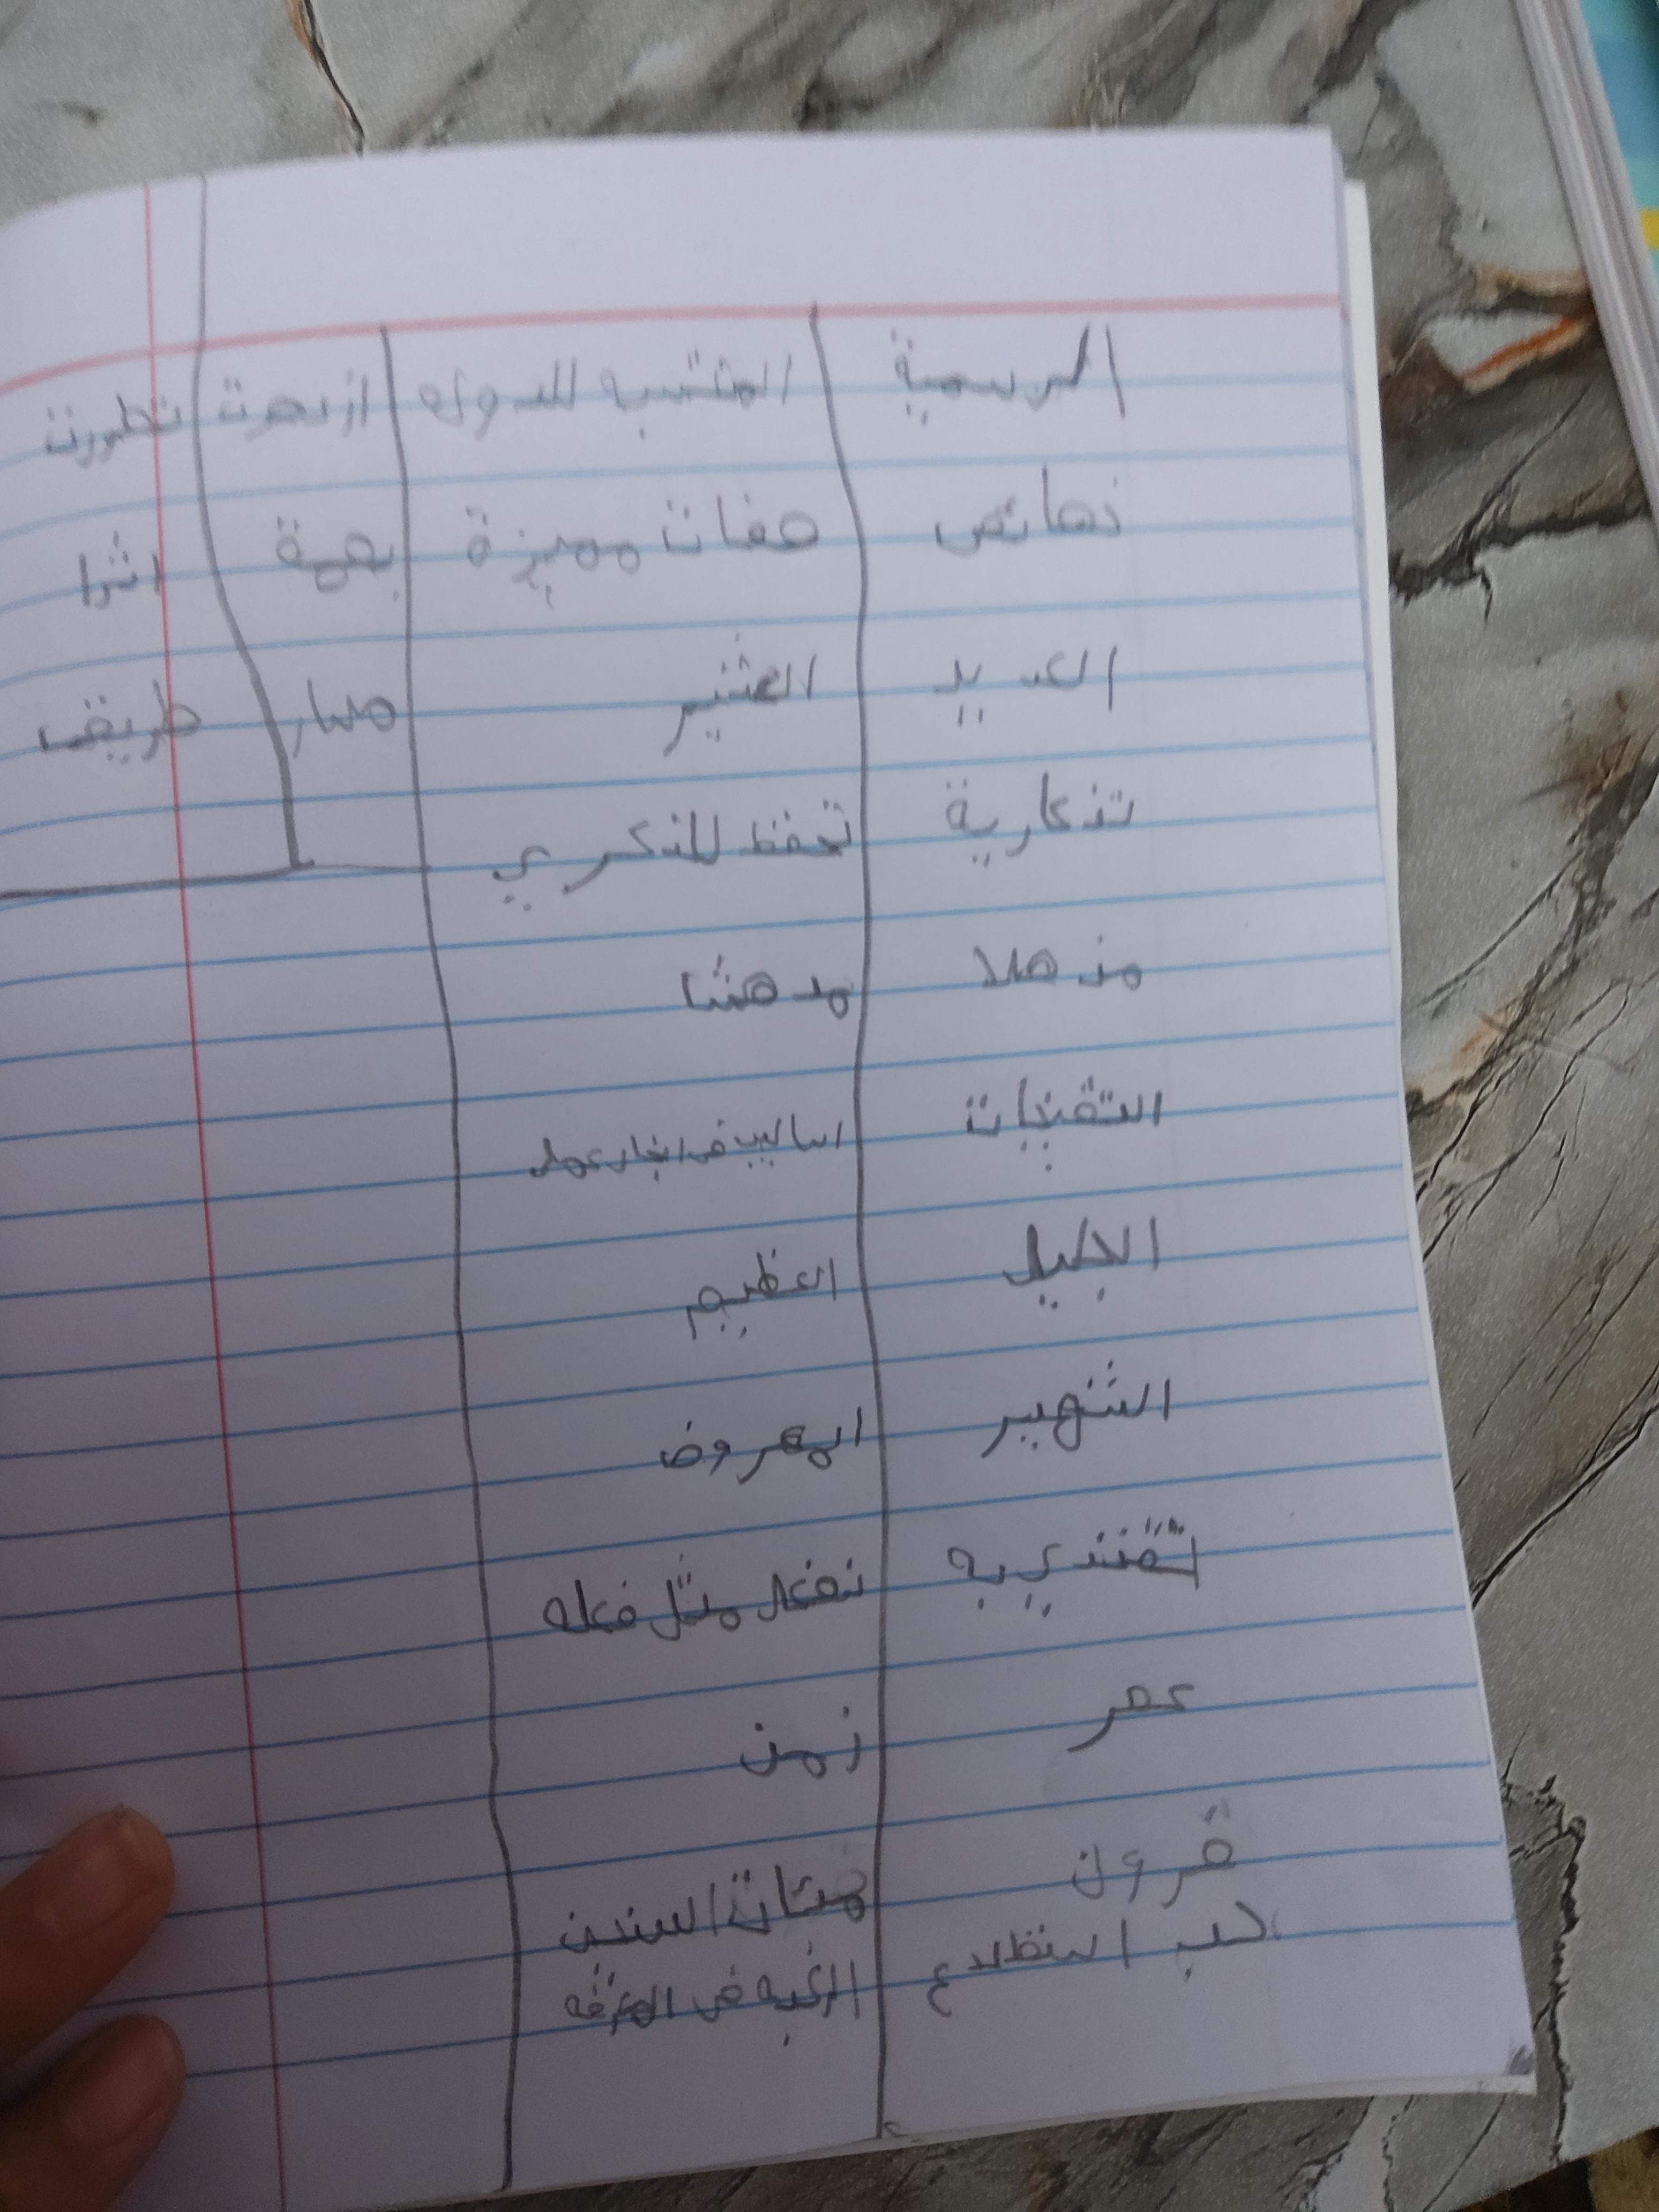 الرسمية المنتسبه للدوله ازدهرت تطورت
خصائص صفات مميزة بصمة اثرا
العديد الكثير مسار طريق
تذكارية تحفظ للذكري
مذهلا مدهشا
التقنيات اساليب في انجاز عمل
الجليل العظيم
الشهير المعروف
نقتدي به نفعل مثل فعله
عصر زمن
قرون مئات السنين
حب استطلاع الرغبه في المعرفه